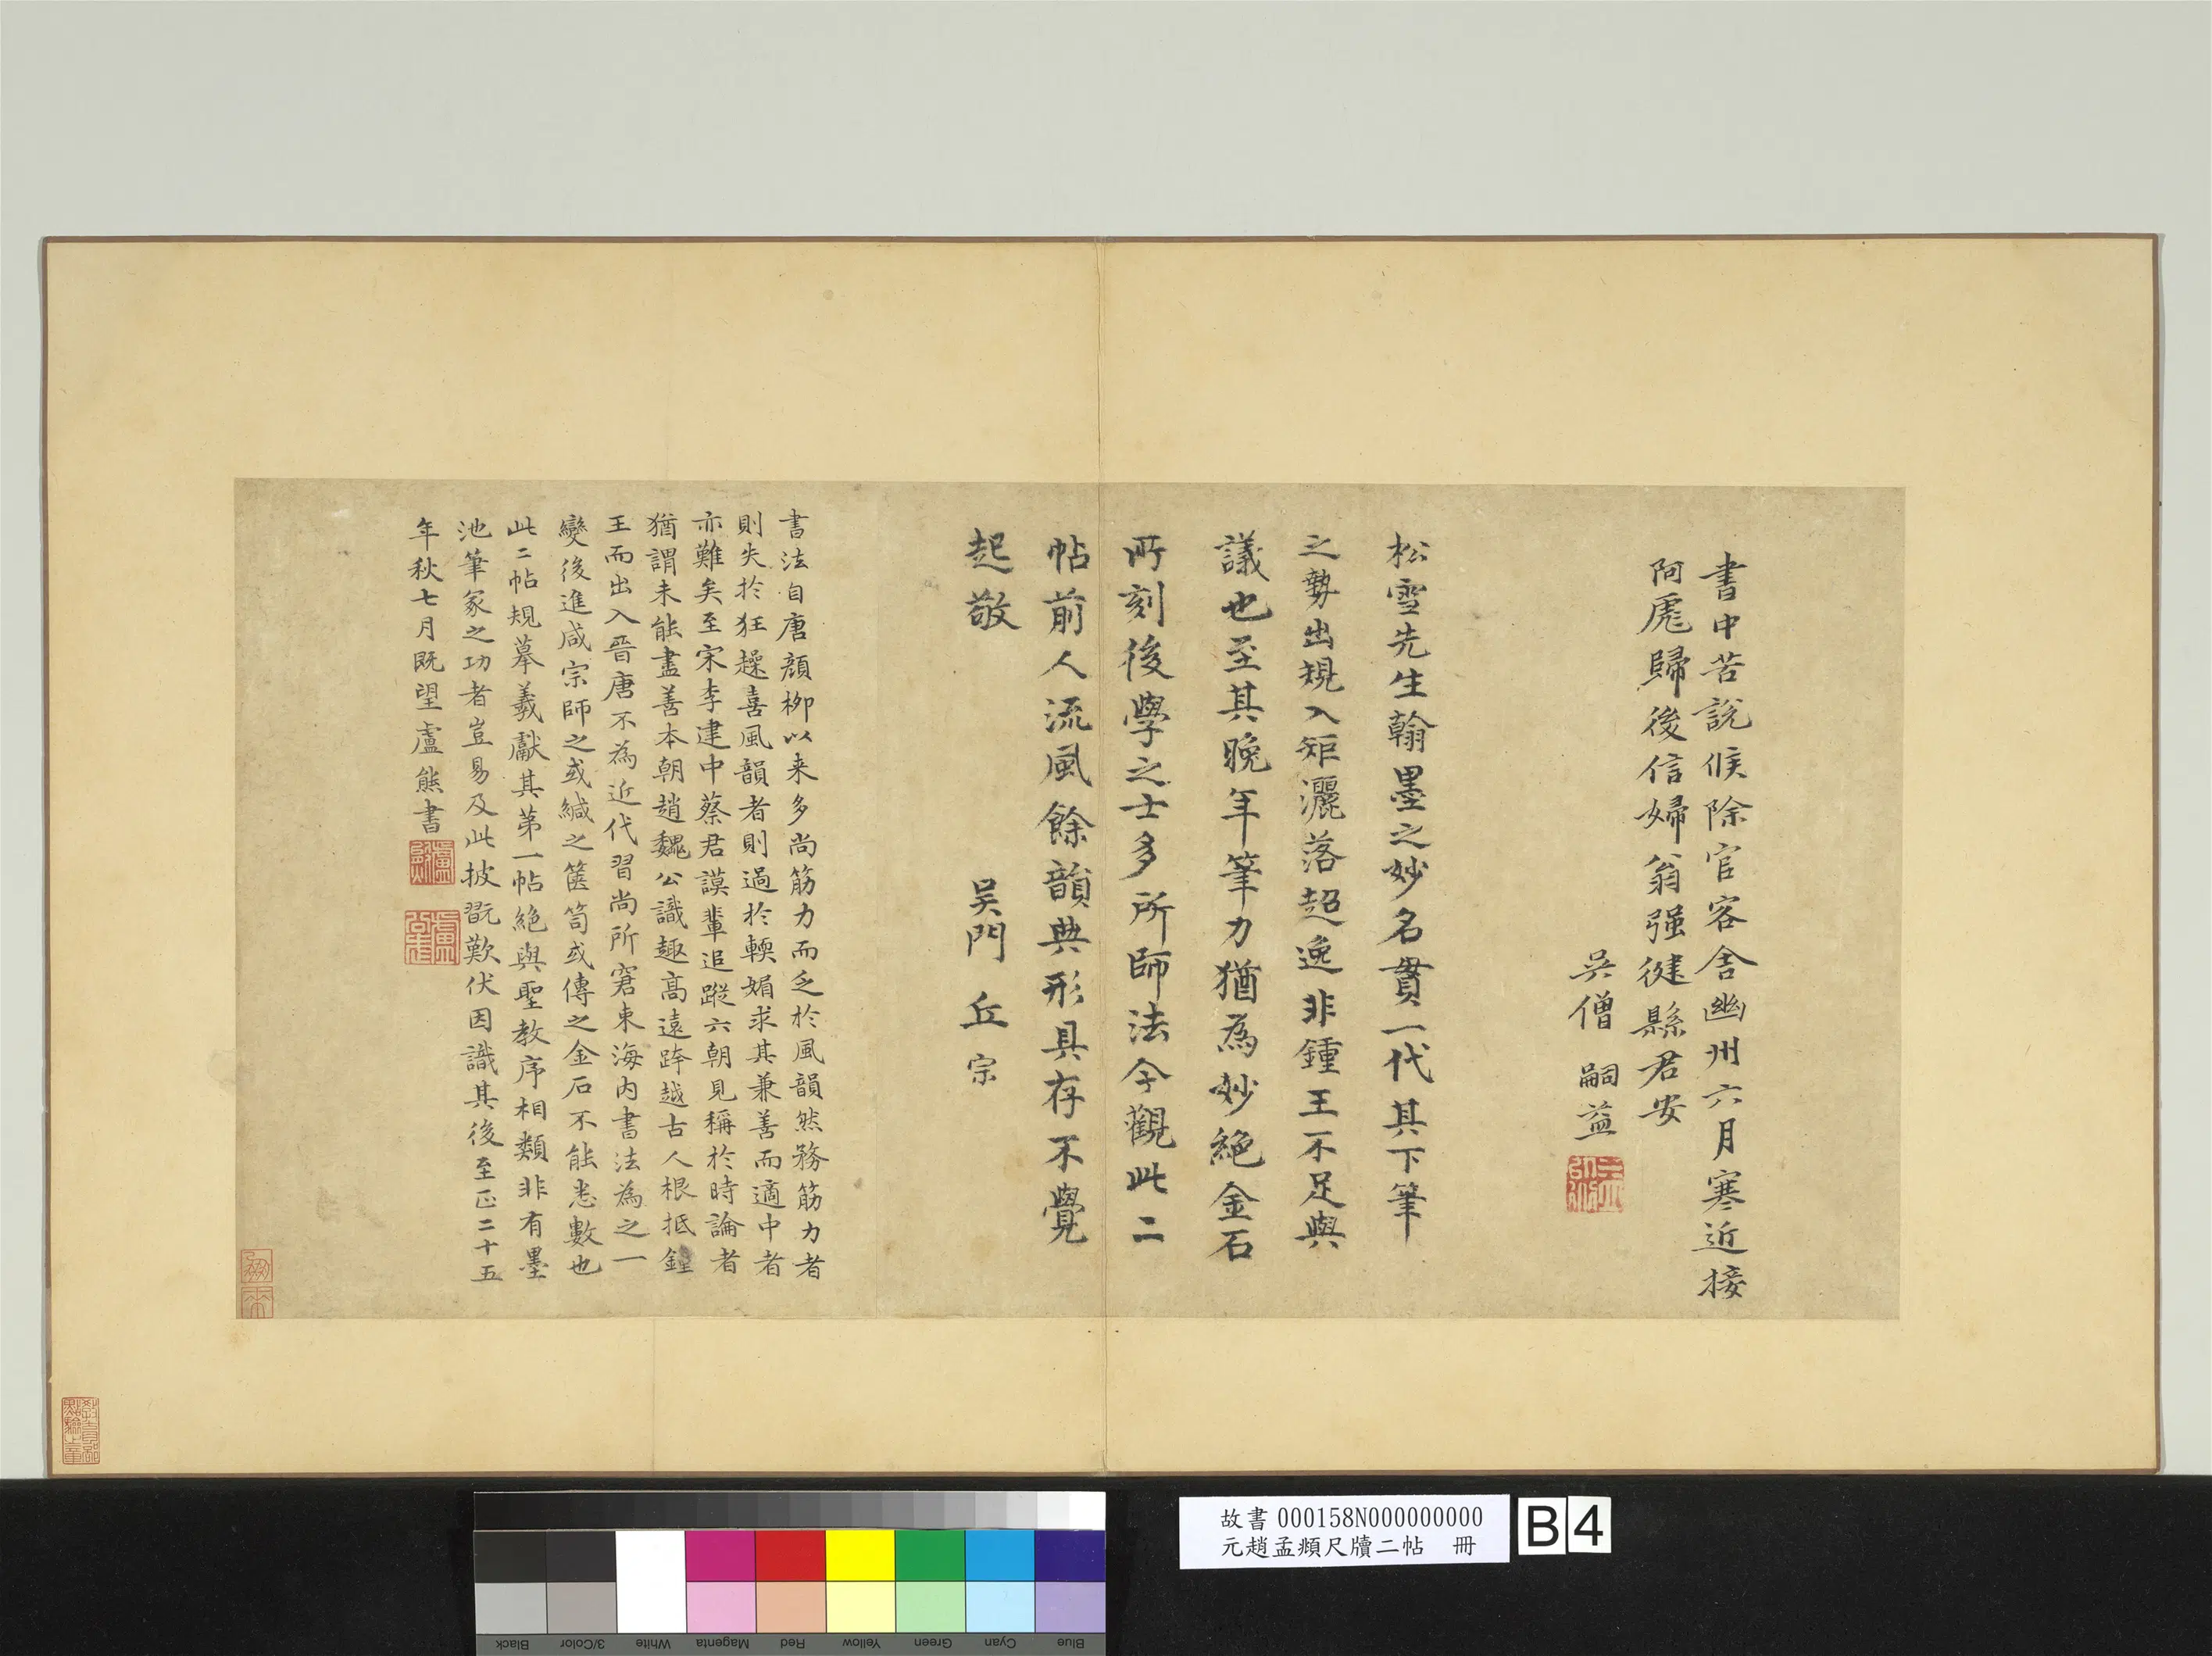 書中苦說候除官客舍幽州六月寒近接
阿彪歸後信婦翁强健縣君安
吳僧 嗣益
松雪先生翰墨之妙名貫一代其下筆
之勢出規入矩灑落超逸非鍾王不足與
議也至其晚年筆力猶為妙絕金石
所刻後學之士多所師法今觀此二
帖前人流風餘韻典形具存不覺
起敬
吴門 丘宗
書法自唐顔柳以来多尚筋力而乏於風韻然務筋力者
則失於狂躁喜風韻者則過於輭媚求其兼善而適中者
亦難矣至宋李建中蔡君謨輩追蹤六朝見稱於時論者
猶謂未能盡善本朝趙魏公識趣高遠跨越古人根抵鍾
王而出入晉唐不為近代習尚所窘東海内書法為之一
變後進咸宗師之或緘之篋笥或傳之金石不能悉數也
此二帖規摹羲獻其第一帖絕與聖教序相類非有墨
池筆冢之功者豈易及此披翫歎伏因識其後至正二十五
年秋七月既望盧熊書
盧熊
教育部點驗之章
故書 000158N000000000
元趙孟頫尺牘二帖 冊
B 4
Black
3/Color
White
Magenta
Red
Yellow
Green
Cyan
Blue